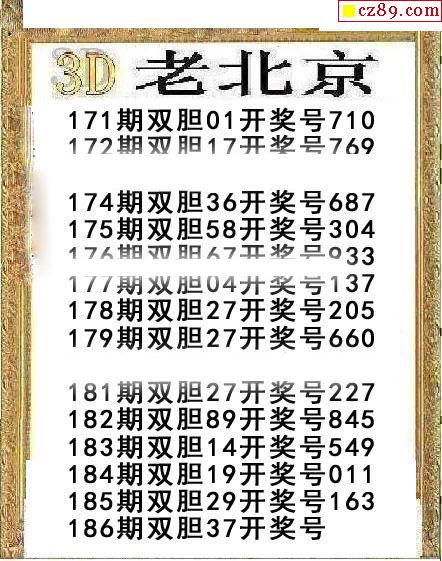 cz89.com
3D 老北京
171期双胆01开奖号710
172期双胆17开奖号769
174期双胆36开奖号687
175期双胆58开奖号304
176期双胆67开奖号933
177期双胆04开奖号137
178期双胆27开奖号205
179期双胆27开奖号660
181期双胆27开奖号227
182期双胆89开奖号845
183期双胆14开奖号549
184期双胆19开奖号011
185期双胆29开奖号163
186期双胆37开奖号